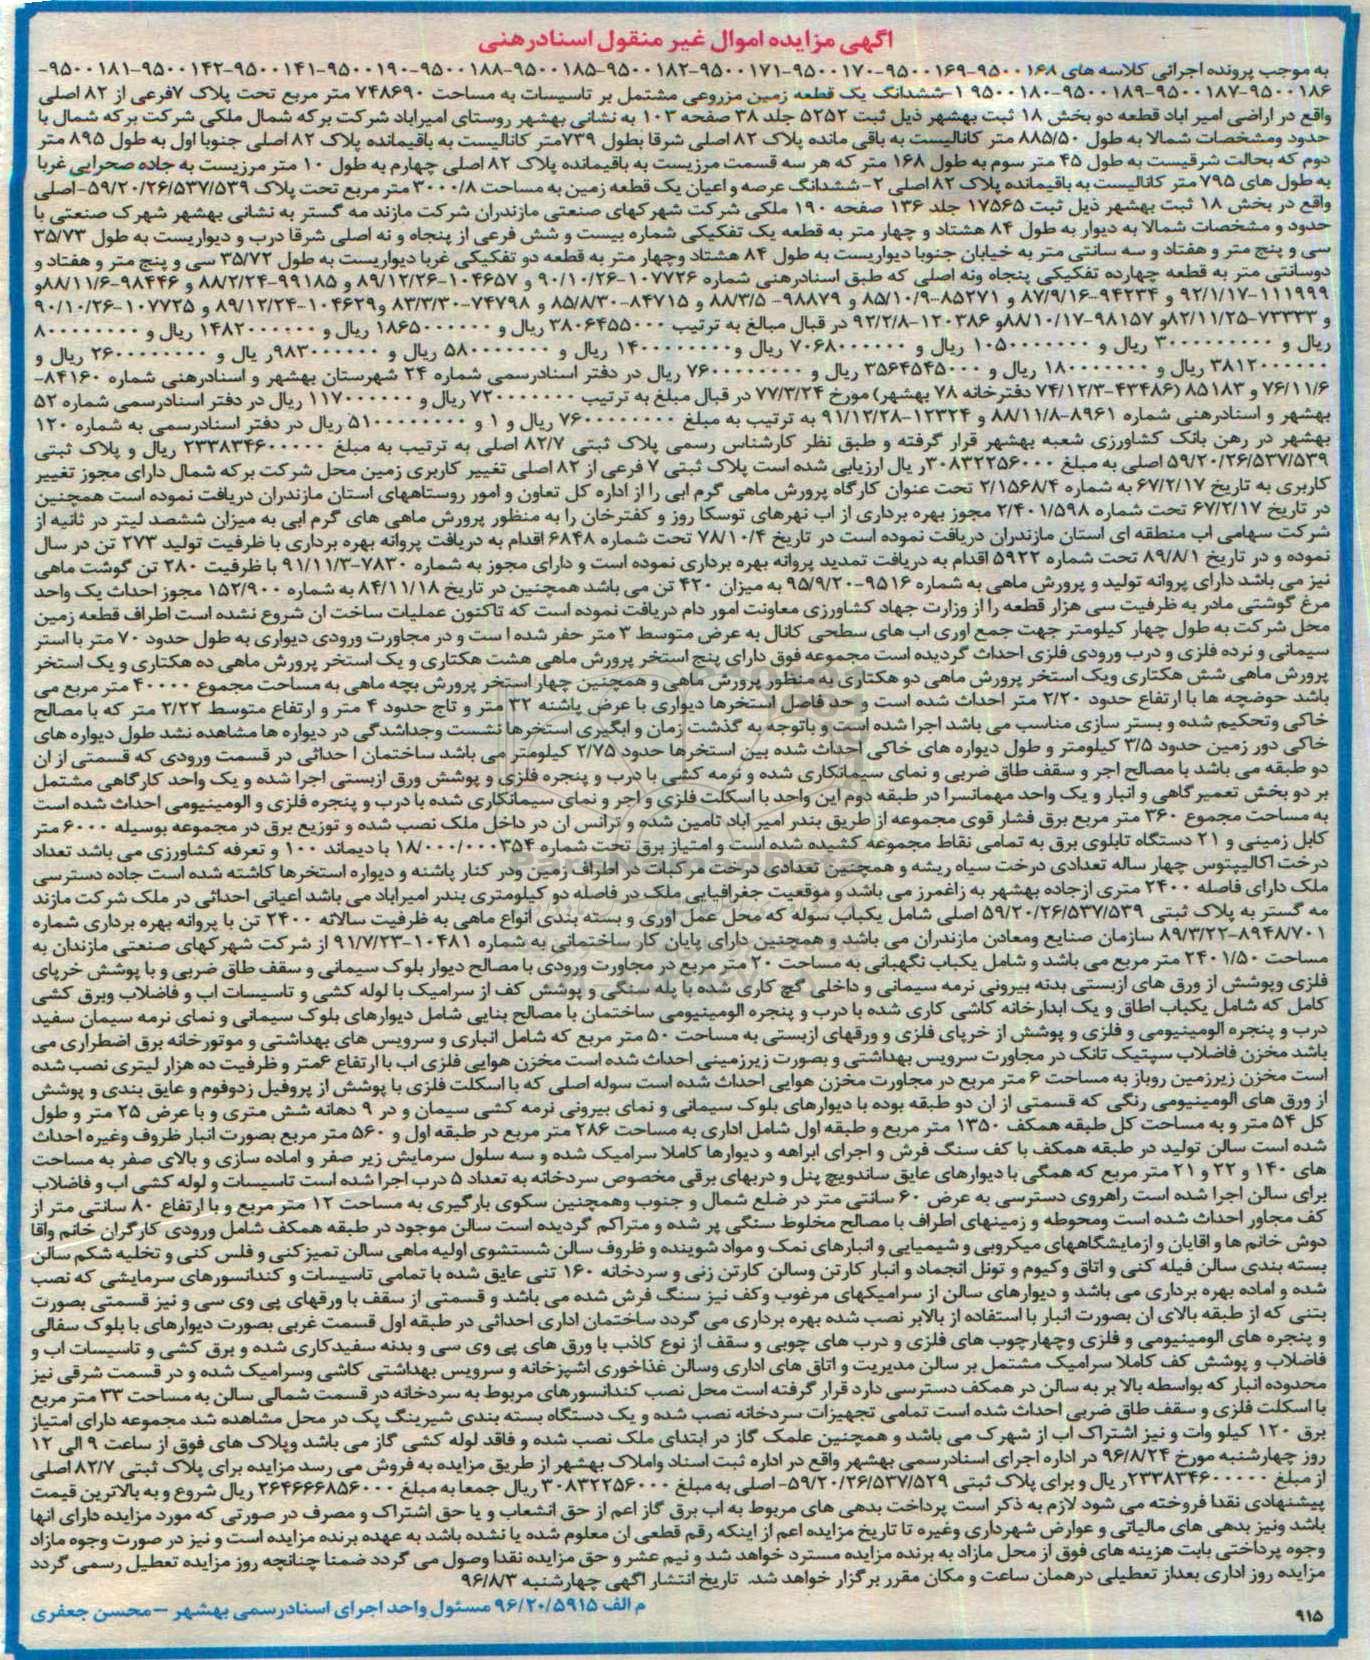 آگهی مزایده اموال غیر منقول اسنادرهنی
به موجب پرونده اجرائی کلاسه های ۹۵۰۰۱۶۸-۹۵۰۰۱۶۹-۹۵۰۰۱۷۰-۹۵۰۰۱۷۱-۹۵۰۰۱۸۲-۹۵۰۰۱۸۵-۹۵۰۰۱۸۸-۹۵۰۰۱۹۰-۹۵۰۰۱۴۱-۹۵۰۰۱۴۲-۹۵۰۰۱۸۱-
۹۵۰۰۱۸۶-۹۵۰۰۱۸۷-۹۵۰۰۱۸۹-۹۵۰۰۱۸۰ ۱-ششدانگ یک قطعه زمین مزروعی مشتمل بر تاسیسات به مساحت ۷۴۸۶۹۰ متر مربع تحت پلاک ۷فرعی از ۸۲ اصلی
واقع در اراضی امیر اباد قطعه دو بخش ۱۸ ثبت بهشهر ذیل ثبت ۵۲۵۲ جلد ۳۸ صفحه ۱۰۳ به نشانی بهشهر روستای امیراباد شرکت برکه شمال ملکی شرکت برکه شمال با
حدود ومشخصات شمالا به طول ۸۸۵/۵۰ متر کانالیست به باقی مانده پلاک ۸۲ اصلی شرقا بطول ۷۳۹متر کانالیست به باقیمانده پلاک ۸۲ اصلی جنوبا اول به طول ۸۹۵ متر
دوم که بحالت شرقیست به طول ۴۵ متر سوم به طول ۱۶۸ متر که هر سه قسمت مرزیست به باقیمانده پلاک ۸۲ اصلی چهارم به طول ۱۰ متر مرزیست به جاده صحرایی غربا
به طول های ۷۹۵ متر کانالیست به باقیمانده پلاک ۸۲ اصلی ۲- ششدانگ عرصه و اعیان یک قطعه زمین به مساحت ۳۰۰۰/۸ متر مربع تحت پلاک ۵۹/۲۰/۲۶/۵۳۷/۵۳۹-اصلی
واقع در بخش ۱۸ ثبت بهشهر ذیل ثبت ۱۷۵۶۵ جلد ۱۳۶ صفحه ۱۹۰ ملکی شرکت شهرکهای صنعتی مازندران شرکت مازند مه گستر به نشانی بهشهر شهرک صنعتی با
حدود و مشخصات شمالا به دیوار به طول ۸۴ هشتاد و چهار متر به قطعه یک تفکیکی شماره بیست و شش فرعی از پنجاه و نه اصلی شرقا درب و دیواریست به طول ۳۵/۷۳
سی و پنج متر و هفتاد و سه سانتی متر به خیابان جنوبا دیواریست به طول ۸۴ هشتاد وچهار متر به قطعه دو تفکیکی غربا دیواریست به طول ۳۵/۷۲ سی و پنج متر و هفتاد و
دوسانتی متر به قطعه چهارده تفکیکی پنجاه ونه اصلی که طبق اسنادرهنی شماره ۱۰۷۷۲۶-۹۰/۱۰/۲۶ و ۱۰۴۶۵۷-۸۹/۱۲/۲۶ و ۹۹۱۸۵-۸۸/۲/۲۴ و ۹۸۴۴۶-۸۸/۱۱/۶و
۱۱۱۹۹۹-۹۲/۱/۱۷ و ۹۴۲۳۴-۸۷/۹/۱۶ و ۸۵۲۷۱-۸۵/۱۰/۹ و ۹۸۸۷۹- ۸۸/۳/۵ و ۸۴۷۱۵-۸۵/۸/۳۰ و ۷۴۷۹۸-۸۳/۳/۳۰ و۱۰۴۶۲۹-۸۹/۱۲/۲۴ و ۱۰۷۷۲۵-۹۰/۱۰/۲۶
و ۷۳۳۳۳-۸۲/۱۱/۲۵و ۹۸۱۵۷-۸۸/۱۰/۱۷و ۱۲۰۳۸۶-۹۲/۲/۸ در قبال مبالغ به ترتیب ۳۸۰۶۴۵۵۰۰۰ ریال و ۱۸۶۵۰۰۰۰۰۰ ریال و ۱۴۸۲۰۰۰۰۰۰ ریال و ۸۰۰۰۰۰۰۰۰
ریال و ۳۰۰۰۰۰۰۰۰۰ ریال و ۱۰۵۰۰۰۰۰۰۰ ریال و ۷۰۶۸۰۰۰۰۰۰ ریال و۱۴۰۰۰۰۰۰۰۰ ریال و ۵۸۰۰۰۰۰۰۰ ریال و ۹۸۳۰۰۰۰۰۰ر یال و ۲۶۰۰۰۰۰۰۰۰ ریال و
۳۸۱۲۰۰۰۰۰۰ ریال و ۱۸۰۰۰۰۰۰۰ ریال و ۳۵۶۴۵۴۵۰۰۰ ریال و ۷۶۰۰۰۰۰۰۰۰ ریال در دفتر اسنادرسمی شماره ۲۴ شهرستان بهشهر و اسنادرهنی شماره ۸۴۱۶۰-
۷۶/۱۱/۶ و ۸۵۱۸۳ (۴۳۴۸۶-۷۴/۱۲/۳ دفترخانه ۷۸ بهشهر) مورخ ۷۷/۳/۲۴ در قبال مبلغ به ترتیب ۷۲۰۰۰۰۰۰۰ ریال و ۱۱۷۰۰۰۰۰۰ ریال در دفتر اسنادرسمی شماره ۵۲
بهشهر و اسنادرهنی شماره ۸۹۶۱-۸۸/۱۱/۸ و ۱۲۳۲۴-۹۱/۱۲/۲۸ به ترتیب به مبلغ ۷۶۰۰۰۰۰۰۰۰ ریال و ۱ و ۵۱۰۰۰۰۰۰۰۰ ریال در دفتر اسنادرسمی به شماره ۱۲۰
بهشهر در رهن بانک کشاورزی شعبه بهشهر قرار گرفته و طبق نظر کارشناس رسمی پلاک ثبتی ۸۲/۷ اصلی به ترتیب به مبلغ ۲۳۳۸۳۴۶۰۰۰۰۰ ریال و پلاک ثبتی
۵۹/۲۰/۲۶/۵۳۷/۵۳۹ اصلی به مبلغ ۳۰۸۳۲۲۵۶۰۰۰ر یال ارزیابی شده است پلاک ثبتی ۷ فرعی از ۸۲ اصلی تغییر کاربری زمین محل شرکت برکه شمال دارای مجوز تغییر
کاربری به تاریخ ۶۷/۲/۱۷ به شماره ۲/۱۵۶۸/۴ تحت عنوان کارگاه پرورش ماهی گرم ابی را از اداره کل تعاون و امور روستاههای استان مازندران دریافت نموده است همچنین
در تاریخ ۶۷/۲/۱۷ تحت شماره ۲/۴۰۱/۵۹۸ مجوز بهره برداری از اب نهرهای توسکا روز و کفترخان را به منظور پرورش ماهی های گرم ابی به میزان ششصد لیتر در ثانیه از
شرکت سهامی اب منطقه ای استان مازندران دریافت نموده است در تاریخ ۷۸/۱۰/۴ تحت شماره ۶۸۴۸ اقدام به دریافت پروانه بهره برداری با ظرفیت تولید ۲۷۳ تن در سال
نموده و در تاریخ ۸۹/۸/۱ تحت شماره ۵۹۲۲ اقدام به دریافت تمدید پروانه بهره برداری نموده است و دارای مجوز به شماره ۷۸۳۰-۹۱/۱۱/۳ با ظرفیت ۲۸۰ تن گوشت ماهی
نیز می باشد دارای پروانه تولید و پرورش ماهی به شماره ۹۵۱۶-۹۵/۹/۲۰ به میزان ۴۲۰ تن می باشد همچنین در تاریخ ۸۴/۱۱/۱۸ به شماره ۱۵۲/۹۰۰ مجوز احداث یک واحد
مرغ گوشتی مادر به ظرفیت سی هزار قطعه را از وزارت جهاد کشاورزی معاونت امور دام دریافت نموده است که تاکنون عملیات ساخت ان شروع نشده است اطراف قطعه زمین
محل شرکت به طول چهار کیلومتر جهت جمع اوری اب های سطحی کانال به عرض متوسط ۳ متر حفر شده ا ست و در مجاورت ورودی دیواری به طول حدود ۷۰ متر با استر
سیمانی و نرده فلزی و درب ورودی فلزی احداث گردیده است مجموعه فوق دارای پنج استخر پرورش ماهی هشت هکتاری و یک استخر پرورش ماهی ده هکتاری و یک استخر
پرورش ماهی شش هکتاری ویک استخر پرورش ماهی دو هکتاری به منظور پرورش ماهی و همچنین چهار استخر پرورش بچه ماهی به مساحت مجموع ۴۰۰۰۰ متر مربع می
باشد حوضچه ها با ارتفاع حدود ۲/۲۰ متر احداث شده است و حد فاصل استخرها دیواری با عرض پاشنه ۳۲ متر و تاج حدود ۴ متر و ارتفاع متوسط ۲/۲۲ متر که با مصالح
خاکی وتحکیم شده و بستر سازی مناسب می باشد اجرا شده است و باتوجه به گذشت زمان و ابگیری استخرها نشست وجداشدگی در دیواره ها مشاهده نشد طول دیواره های
خاکی دور زمین حدود ۳/۵ کیلومتر و طول دیواره های خاکی احداث شده بین استخرها حدود ۲/۷۵ کیلومتر می باشد ساختمان ا حداثی در قسمت ورودی که قسمتی از ان
دو طبقه می باشد با مصالح اجر و سقف طاق ضربی و نمای سیمانکاری شده و نرمه کشی با درب و پنجره فلزی و پوشش ورق ازبستی اجرا شده و یک واحد کارگاهی مشتمل
بر دو بخش تعمیرگاهی و انبار و یک واحد مهمانسرا در طبقه دوم این واحد با اسکلت فلزی و اجر و نمای سیمانکاری شده با درب و پنجره فلزی و الومینیومی احداث شده است
به مساحت مجموع ۳۶۰ متر مربع برق فشار قوی مجموعه از طریق بندر امیر اباد تامین شده و ترانس ان در داخل ملک نصب شده و توزیع برق در مجموعه بوسیله ۶۰۰۰ متر
کابل زمینی و ۲۱ دستگاه تابلوی برق به تمامی نقاط مجموعه کشیده شده است و امتیاز برق تحت شماره ۱۸/۰۰۰/۰۰۰۳۵۴ با دیماند ۱۰۰ و تعرفه کشاورزی می باشد تعداد
درخت اکالیپتوس چهار ساله تعدادی درخت سیاه ریشه و همچنین تعدادی درخت مرکبات در اطراف زمین ودر کنار پاشنه و دیواره استخرها کاشته شده است جاده دسترسی
ملک دارای فاصله ۲۴۰۰ متری ازجاده بهشهر به زاغمرز می باشد و موقعیت جغرافیایی ملک در فاصله دو کیلومتری بندر امیراباد می باشد اعیانی احداثی در ملک شرکت مازند
مه گستر به پلاک ثبتی ۵۹/۲۰/۲۶/۵۳۷/۵۳۹ اصلی شامل یکباب سوله که محل عمل اوری و بسته بندی انواع ماهی به ظرفیت سالانه ۲۴۰۰ تن با پروانه بهره برداری شماره
۸۹۴۸/۷۰۱-۸۹/۳/۲۲ سازمان صنایع ومعادن مازندران می باشد و همچنین دارای پایان کار ساختمانی به شماره ۱۰۴۸۱-۹۱/۷/۲۳ از شرکت شهرکهای صنعتی مازندان به
مساحت ۲۴۰۱/۵۰ متر مربع می باشد و شامل یکباب نگهبانی به مساحت ۲۰ متر مربع در مجاورت ورودی با مصالح دیوار بلوک سیمانی و سقف طاق ضربی و با پوشش خرپای
فلزی وپوشش از ورق های ازبستی بدنه بیرونی نرمه سیمانی و داخلی گچ کاری شده با پله سنگی و پوشش کف از سرامیک با لوله کشی و تاسیسات اب و فاضلاب وبرق کشی
کامل که شامل یکباب اطاق و یک ابدارخانه کاشی کاری شده با درب و پنجره الومینیومی ساختمان با مصالح بنایی شامل دیوارهای بلوک سیمانی و نمای نرمه سیمان سفید
درب و پنجره الومینیومی و فلزی و پوشش از خرپای فلزی و ورقهای ازبستی به مساحت ۵۰ متر مربع که شامل انباری و سرویس های بهداشتی و موتورخانه برق اضطراری می
باشد مخزن فاضلاب سپتیک تانک در مجاورت سرویس بهداشتی و بصورت زیرزمینی احداث شده است مخزن هوایی فلزی اب با ارتفاع ۶متر و ظرفیت ده هزار لیتری نصب شده
است مخزن زیرزمین روباز به مساحت ۶ متر مربع در مجاورت مخزن هوایی احداث شده است سوله اصلی که با اسکلت فلزی با پوشش از پروفیل زدوفوم و عایق بندی و پوشش
از ورق های الومینیومی رنگی که قسمتی از ان دو طبقه بوده با دیوارهای بلوک سیمانی و نمای بیرونی نرمه کشی سیمان و در ۹ دهانه شش متری و با عرض ۲۵ متر و طول
کل ۵۴ متر و به مساحت کل طبقه همکف ۱۳۵۰ متر مربع و طبقه اول شامل اداری به مساحت ۲۸۶ متر مربع در طبقه اول و ۵۶۰ متر مربع بصورت انبار ظروف وغیره احداث
شده است سالن تولید در طبقه همکف با کف سنگ فرش و اجرای ابراهه و دیوارها کاملا سرامیک شده و سه سلول سرمایش زیر صفر و اماده سازی و بالای صفر به مساحت
های ۱۴۰ و ۲۲ و ۲۱ متر مربع که همگی با دیوارهای عایق ساندویچ پنل و دربهای برقی مخصوص سردخانه به تعداد ۵ درب اجرا شده است تاسیسات و لوله کشی اب و فاضلاب
برای سالن اجرا شده است راهروی دسترسی به عرض ۶۰ سانتی متر در ضلع شمال و جنوب وهمچنین سکوی بارگیری به مساحت ۱۲ متر مربع و با ارتفاع ۸۰ سانتی متر از
کف مجاور احداث شده است ومحوطه و زمینهای اطراف با مصالح مخلوط سنگی پر شده و متراکم گردیده است سالن موجود در طبقه همکف شامل ورودی کارگران خانم واقا
دوش خانم ها و اقایان و ازمایشگاههای میکروبی و شیمیایی و انبارهای نمک و مواد شوینده و ظروف سالن شستشوی اولیه ماهی سالن تمیزکنی و فلس کنی و تخلیه شکم سالن
بسته بندی سالن فیله کنی و اتاق وکیوم و تونل انجماد و انبار کارتن وسالن کارتن زنی و سردخانه ۱۶۰ تنی عایق شده با تمامی تاسیسات و کندانسورهای سرمایشی که نصب
شده و اماده بهره برداری می باشد و دیوارهای سالن از سرامیکهای مرغوب وکف نیز سنگ فرش شده می باشد و قسمتی از سقف با ورقهای پی وی سی و نیز قسمتی بصورت
بتنی که از طبقه بالای ان بصورت انبار با استفاده از بالابر نصب شده بهره برداری می گردد ساختمان اداری احداثی در طبقه اول قسمت غربی بصورت دیوارهای با بلوک سفالی
و پنجره های الومینیومی و فلزی وچهارچوب های فلزی و درب های چوبی و سقف از نوع کاذب با ورق های پی وی سی و بدنه سفیدکاری شده و برق کشی و تاسیسات اب و
فاضلاب و پوشش کف کاملا سرامیک مشتمل بر سالن مدیریت و اتاق های اداری وسالن غذاخوری اشپزخانه و سرویس بهداشتی کاشی وسرامیک شده و در قسمت شرقی نیز
محدوده انبار که بواسطه بالا بر به سالن در همکف دسترسی دارد قرار گرفته است محل نصب کندانسورهای مربوط به سردخانه در قسمت شمالی سالن به مساحت ۳۳ متر مربع
با اسکلت فلزی و سقف طاق ضربی احداث شده است تمامی تجهیزات سردخانه نصب شده و یک دستگاه بسته بندی شیرینگ پک در محل مشاهده شد مجموعه دارای امتیاز
برق ۱۲۰ کیلو وات و نیز اشتراک اب از شهرک می باشد و همچنین علمک گاز در ابتدای ملک نصب شده و فاقد لوله کشی گاز می باشد وپلاک های فوق از ساعت ۹ الی ۱۲
روز چهارشنبه مورخ ۹۶/۸/۲۴ در اداره اجرای اسنادرسمی بهشهر واقع در اداره ثبت اسناد واملاک بهشهر از طریق مزایده به فروش می رسد مزایده برای پلاک ثبتی ۸۲/۷ اصلی
از مبلغ ۲۳۳۸۳۴۶۰۰۰۰۰ر یال و برای پلاک ثبتی ۵۹/۲۰/۲۶/۵۳۷/۵۲۹-اصلی به مبلغ ۳۰۸۳۲۲۵۶۰۰۰ ریال جمعا به مبلغ ۲۶۴۶۶۶۸۵۶۰۰۰ ریال شروع و به بالاترین قیمت
پیشنهادی نقدا فروخته می شود لازم به ذکر است پرداخت بدهی های مربوط به اب برق گاز اعم از حق انشعاب و یا حق اشتراک و مصرف در صورتی که مورد مزایده دارای انها
باشد ونیز بدهی های مالیاتی و عوارض شهرداری وغیره تا تاریخ مزایده اعم از اینکه رقم قطعی ان معلوم شده یا نشده باشد به عهده برنده مزایده است و نیز در صورت وجوه مازاد
وجوه پرداختی بابت هزینه های فوق از محل مازاد به برنده مزایده مسترد خواهد شد و نیم عشر و حق مزایده نقدا وصول می گردد ضمنا چنانچه روز مزایده تعطیل رسمی گردد
مزایده روز اداری بعداز تعطیلی درهمان ساعت و مکان مقرر برگزار خواهد شد. تاریخ انتشار اگهی چهارشنبه ۹۶/۸/۳
م الف ۹۶/۲۰/۵۹۱۵ مسئول واحد اجرای اسنادرسمی بهشهر – محسن جعفری
۹۱۵
ParsNamadData